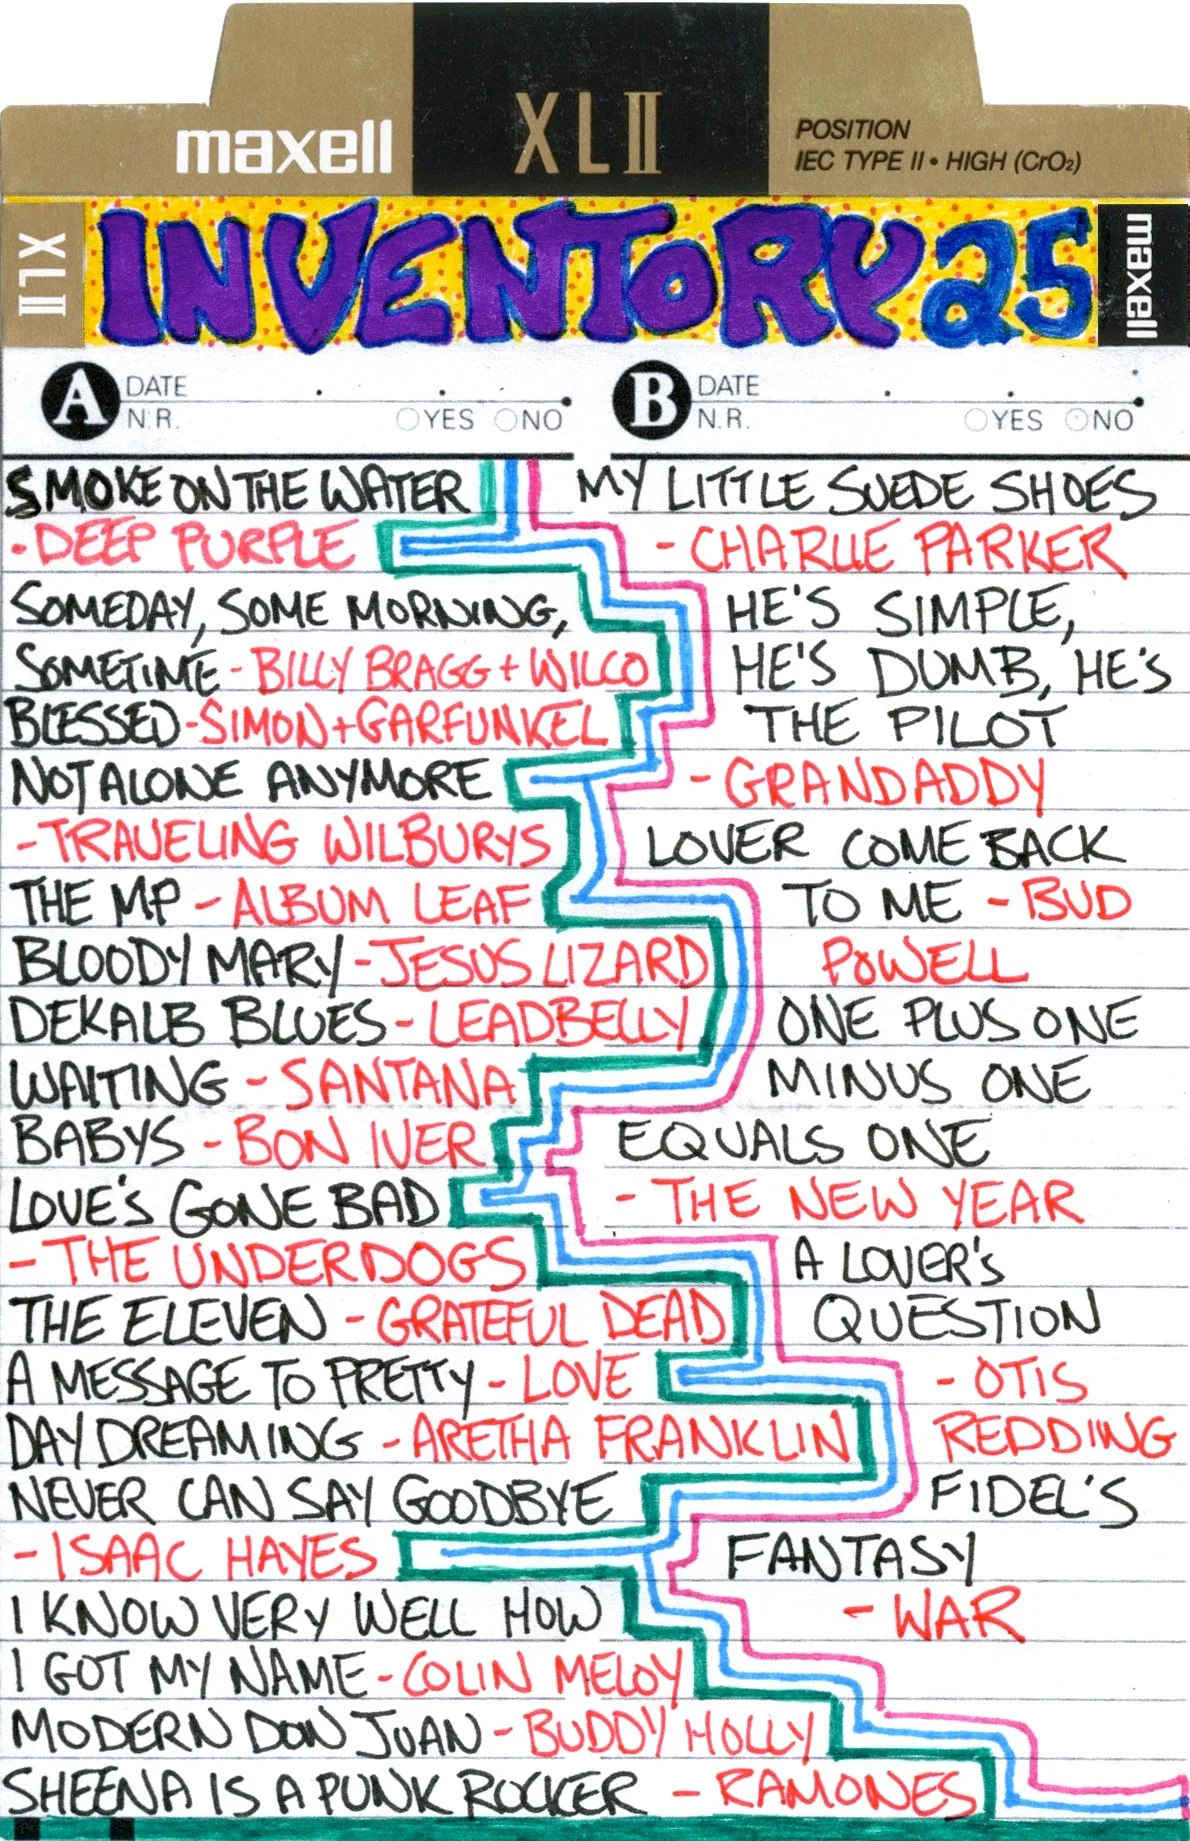 maxell
XLII
POSITION
IEC TYPE II • HIGH (CrO2)
XLII
INVENTORY 25
maxell
A
DATE
N.R.
YES NO
B
DATE
N.R.
YES NO
SMOKE ON THE WATER
- DEEP PURPLE
SOMEDAY, SOME MORNING,
SOMETIME - BILLY BRAGG + WILCO
BLESSED - SIMON + GARFUNKEL
NOT ALONE ANYMORE
- TRAVELING WILBURYS
THE MP - ALBUM LEAF
BLOODY MARY - JESUS LIZARD
DEKALB BLUES - LEADBELLY
WAITING - SANTANA
BABYS - BON IVER
LOVE'S GONE BAD
- THE UNDERDOGS
THE ELEVEN - GRATEFUL DEAD
A MESSAGE TO PRETTY - LOVE
DAY DREAMING - ARETHA FRANKLIN
NEVER CAN SAY GOODBYE
- ISAAC HAYES
I KNOW VERY WELL HOW
I GOT MY NAME - COLIN MELOY
MODERN DON JUAN - BUDDY HOLLY
SHEENA IS A PUNK ROCKER - RAMONES
MY LITTLE SUEDE SHOES
- CHARLIE PARKER
HE'S SIMPLE,
HE'S DUMB, HE'S
THE PILOT
- GRANDADDY
LOVER COME BACK
TO ME - BUD
POWELL
ONE PLUS ONE
MINUS ONE
EQUALS ONE
- THE NEW YEAR
A LOVER'S
QUESTION
- OTIS
REDDING
FIDEL'S
FANTASY
- WAR